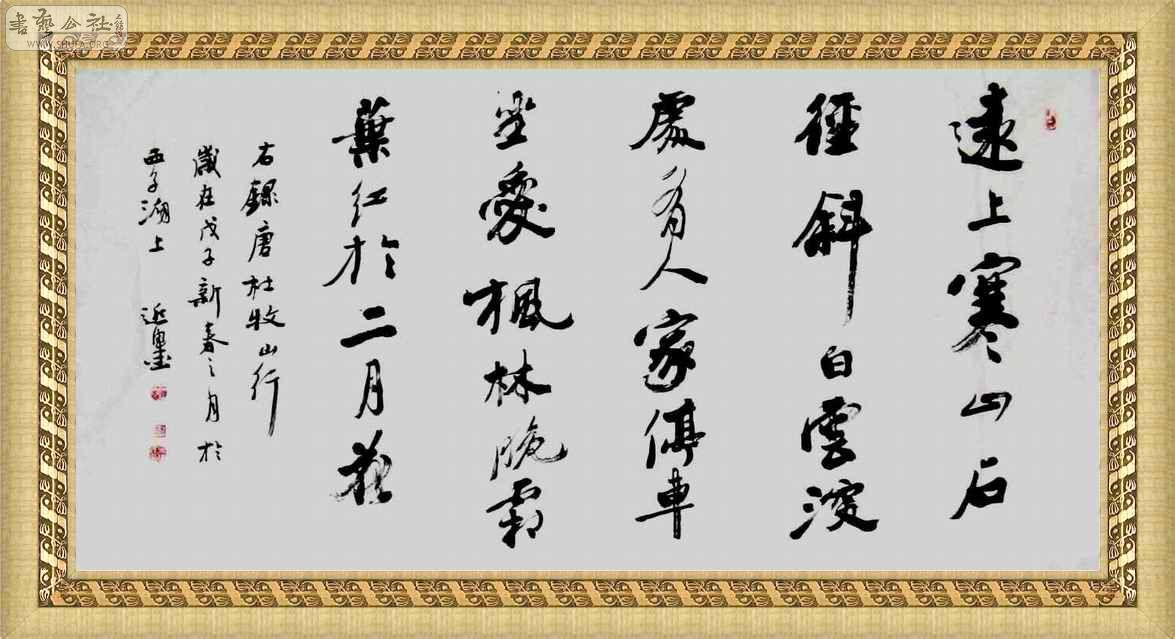 遠上寒山石
徑斜白雲深
處有人家停車
坐愛楓林晚霜
葉紅於二月花
右錄唐杜牧山行
歲在戊子新春之月於
西子湖上 近墨
書藝公社
WWW.SHUFA.ORG